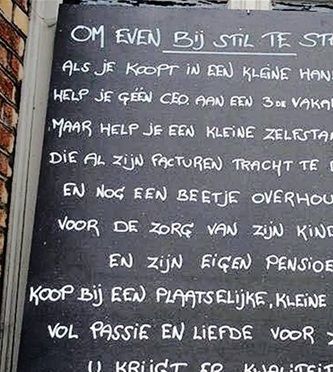 OM EVEN BIJ STIL TE
ALS JE KOOPT IN EEN KLEINE
HELP JE GÉÉN CEO AAN EEN 3DE
MAAR HELP JE EEN KLEINE
DIE AL ZIJN FACTUREN TRACHT TE
EN NOG EEN BEETJE
VOOR DE ZORG VAN ZIJN
EN ZIJN EIGEN
KOOP BIJ EEN PLAATSELIJKE, KLEINE
VOL PASSIE EN LIEFDE VOOR
U KRIJGT ER